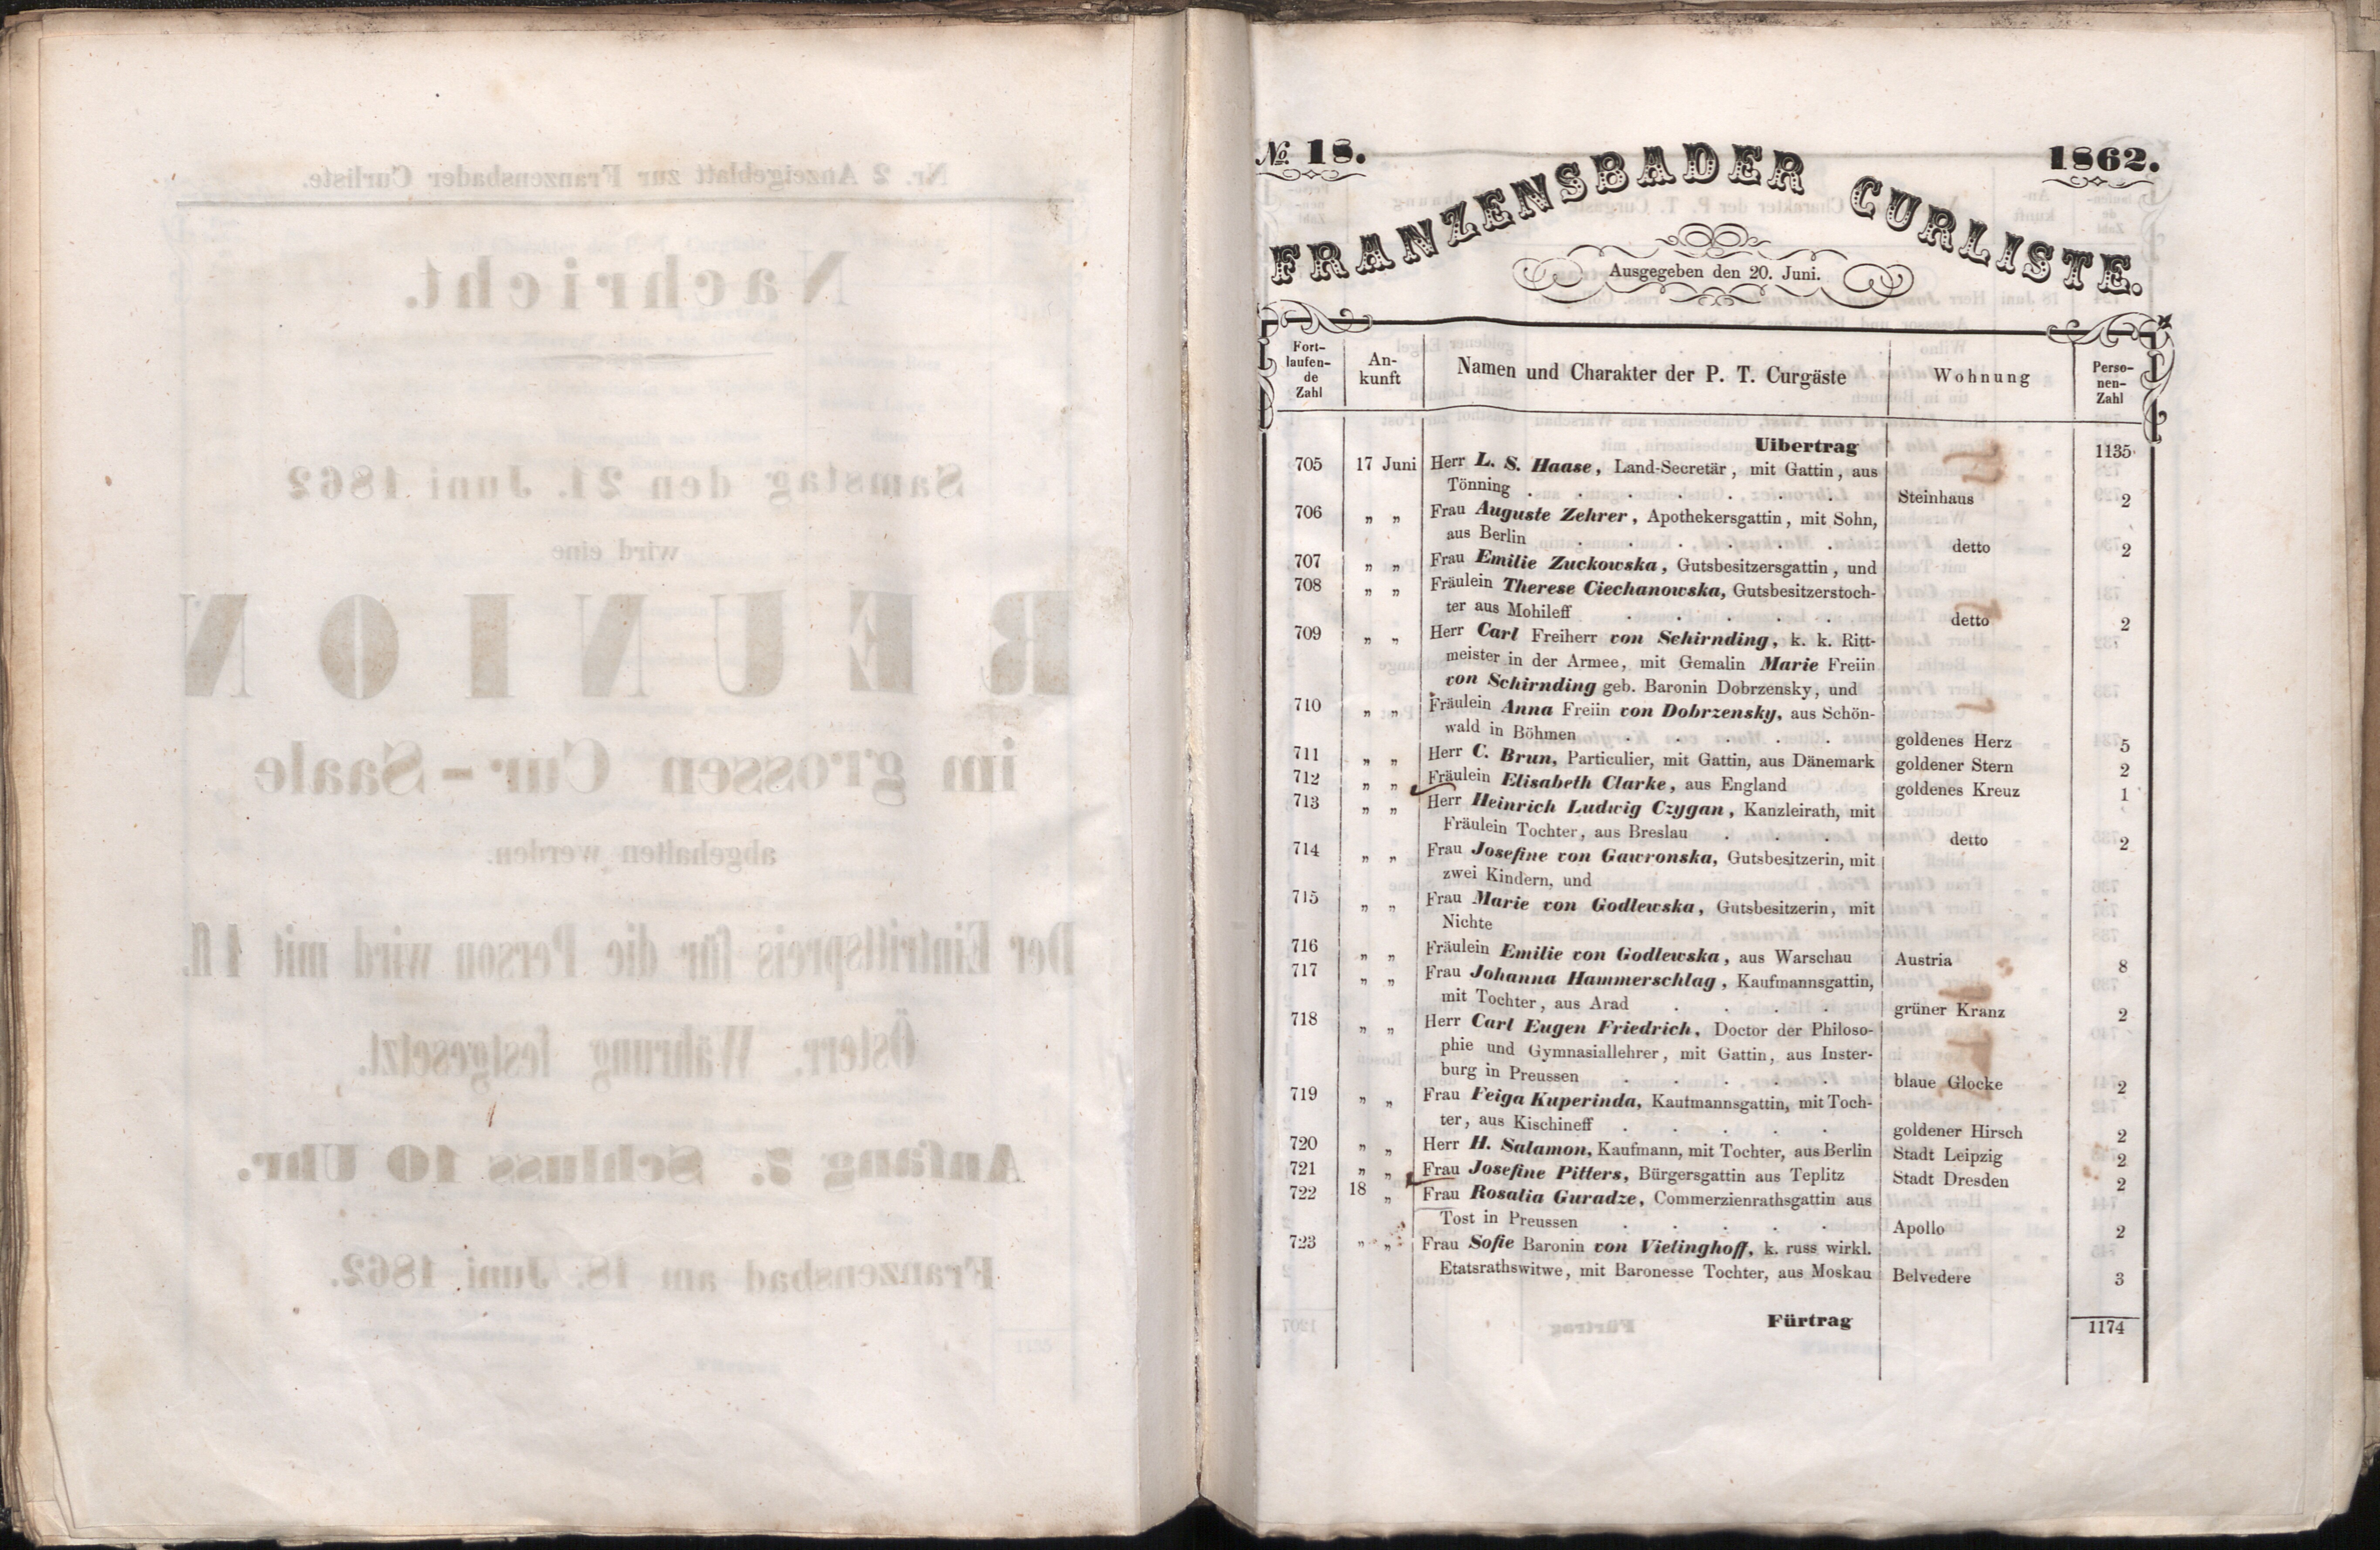 Nr. 2 Anzeigeblatt zur Franzensbader Curliste.
Nachricht.
Samstag den 21. Juni 1862
wird eine
REUNION
im grossen Cur-Saale
abgehalten werden.
Der Eintrittspreis für die Person wird mit 1 fl.
Österr. Währung festgesetzt.
Anfang 7. Schluss 10 Uhr.
Franzensbad am 18. Juni 1862.
No. 18. 1862.
FRANZENSBADER CURLISTE.
Ausgegeben den 20. Juni.
Fort-laufen-de Zahl An-kunft Namen und Charakter der P. T. Curgäste Wohnung Perso-nen-Zahl
Uibertrag 1135
705 17 Juni Herr L. S. Haase, Land-Secretär, mit Gattin, aus
Tönning . . . . . . . Steinhaus 2
706 „ „ Frau Auguste Zehrer, Apothekersgattin, mit Sohn,
aus Berlin . . . . . . detto 2
707 „ „ Frau Emilie Zuckowska, Gutsbesitzersgattin, und
708 „ „ Fräulein Therese Ciechanowska, Gutsbesitzerstoch-
ter aus Mohileff . . . . . detto 2
709 „ „ Herr Carl Freiherr von Schirnding, k. k. Ritt-
meister in der Armee, mit Gemalin Marie Freiin
von Schirnding geb. Baronin Dobrzensky, und
710 „ „ Fräulein Anna Freiin von Dobrzensky, aus Schön-
wald in Böhmen . . . . . goldenes Herz 5
711 „ „ Herr C. Brun, Particulier, mit Gattin, aus Dänemark goldener Stern 2
712 „ „ Fräulein Elisabeth Clarke, aus England goldenes Kreuz 1
713 „ „ Herr Heinrich Ludwig Czygan, Kanzleirath, mit
Fräulein Tochter, aus Breslau . . . detto 2
714 „ „ Frau Josefine von Gawronska, Gutsbesitzerin, mit
zwei Kindern, und
715 „ „ Frau Marie von Godlewska, Gutsbesitzerin, mit
Nichte
716 „ „ Fräulein Emilie von Godlewska, aus Warschau Austria 8
717 „ „ Frau Johanna Hammerschlag, Kaufmannsgattin,
mit Tochter, aus Arad . . . . grüner Kranz 2
718 „ „ Herr Carl Eugen Friedrich, Doctor der Philoso-
phie und Gymnasiallehrer, mit Gattin, aus Inster-
burg in Preussen . . . . . blaue Glocke 2
719 „ „ Frau Feiga Kuperinda, Kaufmannsgattin, mit Toch-
ter, aus Kischineff . . . . . goldener Hirsch 2
720 „ „ Herr H. Salamon, Kaufmann, mit Tochter, aus Berlin Stadt Leipzig 2
721 „ „ Frau Josefine Pitters, Bürgersgattin aus Teplitz Stadt Dresden 2
722 18 „ Frau Rosalia Guradze, Commerzienrathsgattin aus
Tost in Preussen . . . . . Apollo 2
723 „ „ Frau Sofie Baronin von Vietinghoff, k. russ. wirkl.
Etatsrathswitwe, mit Baronesse Tochter, aus Moskau Belvedere 3
Fürtrag 1174